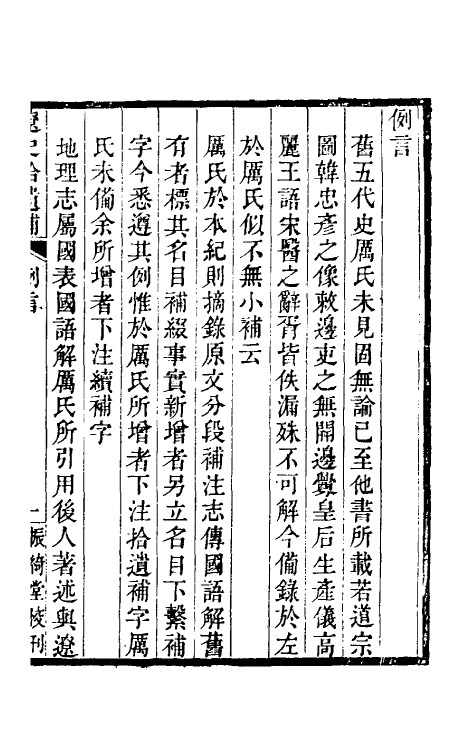 例言
舊五代史厲氏未見固無論已至他書所載若道宗
圖韓忠彥之像敕邊吏之無開邊釁皇后生產儀高
麗王語宋醫之辭胥皆佚漏殊不可解今備錄於左
於厲氏似不無小補云
厲氏於本紀則摘錄原文分段補注志傳國語解舊
有者標其名目補綴事實新增者另立名目下繫補
字今悉遵其例惟於厲氏所增者下注拾遺補字厲
氏未備余所增者下注續補字
地理志屬國表國語解厲氏所引用後人著述與遼
遼史拾遺補 例言 一 振綺堂校刊